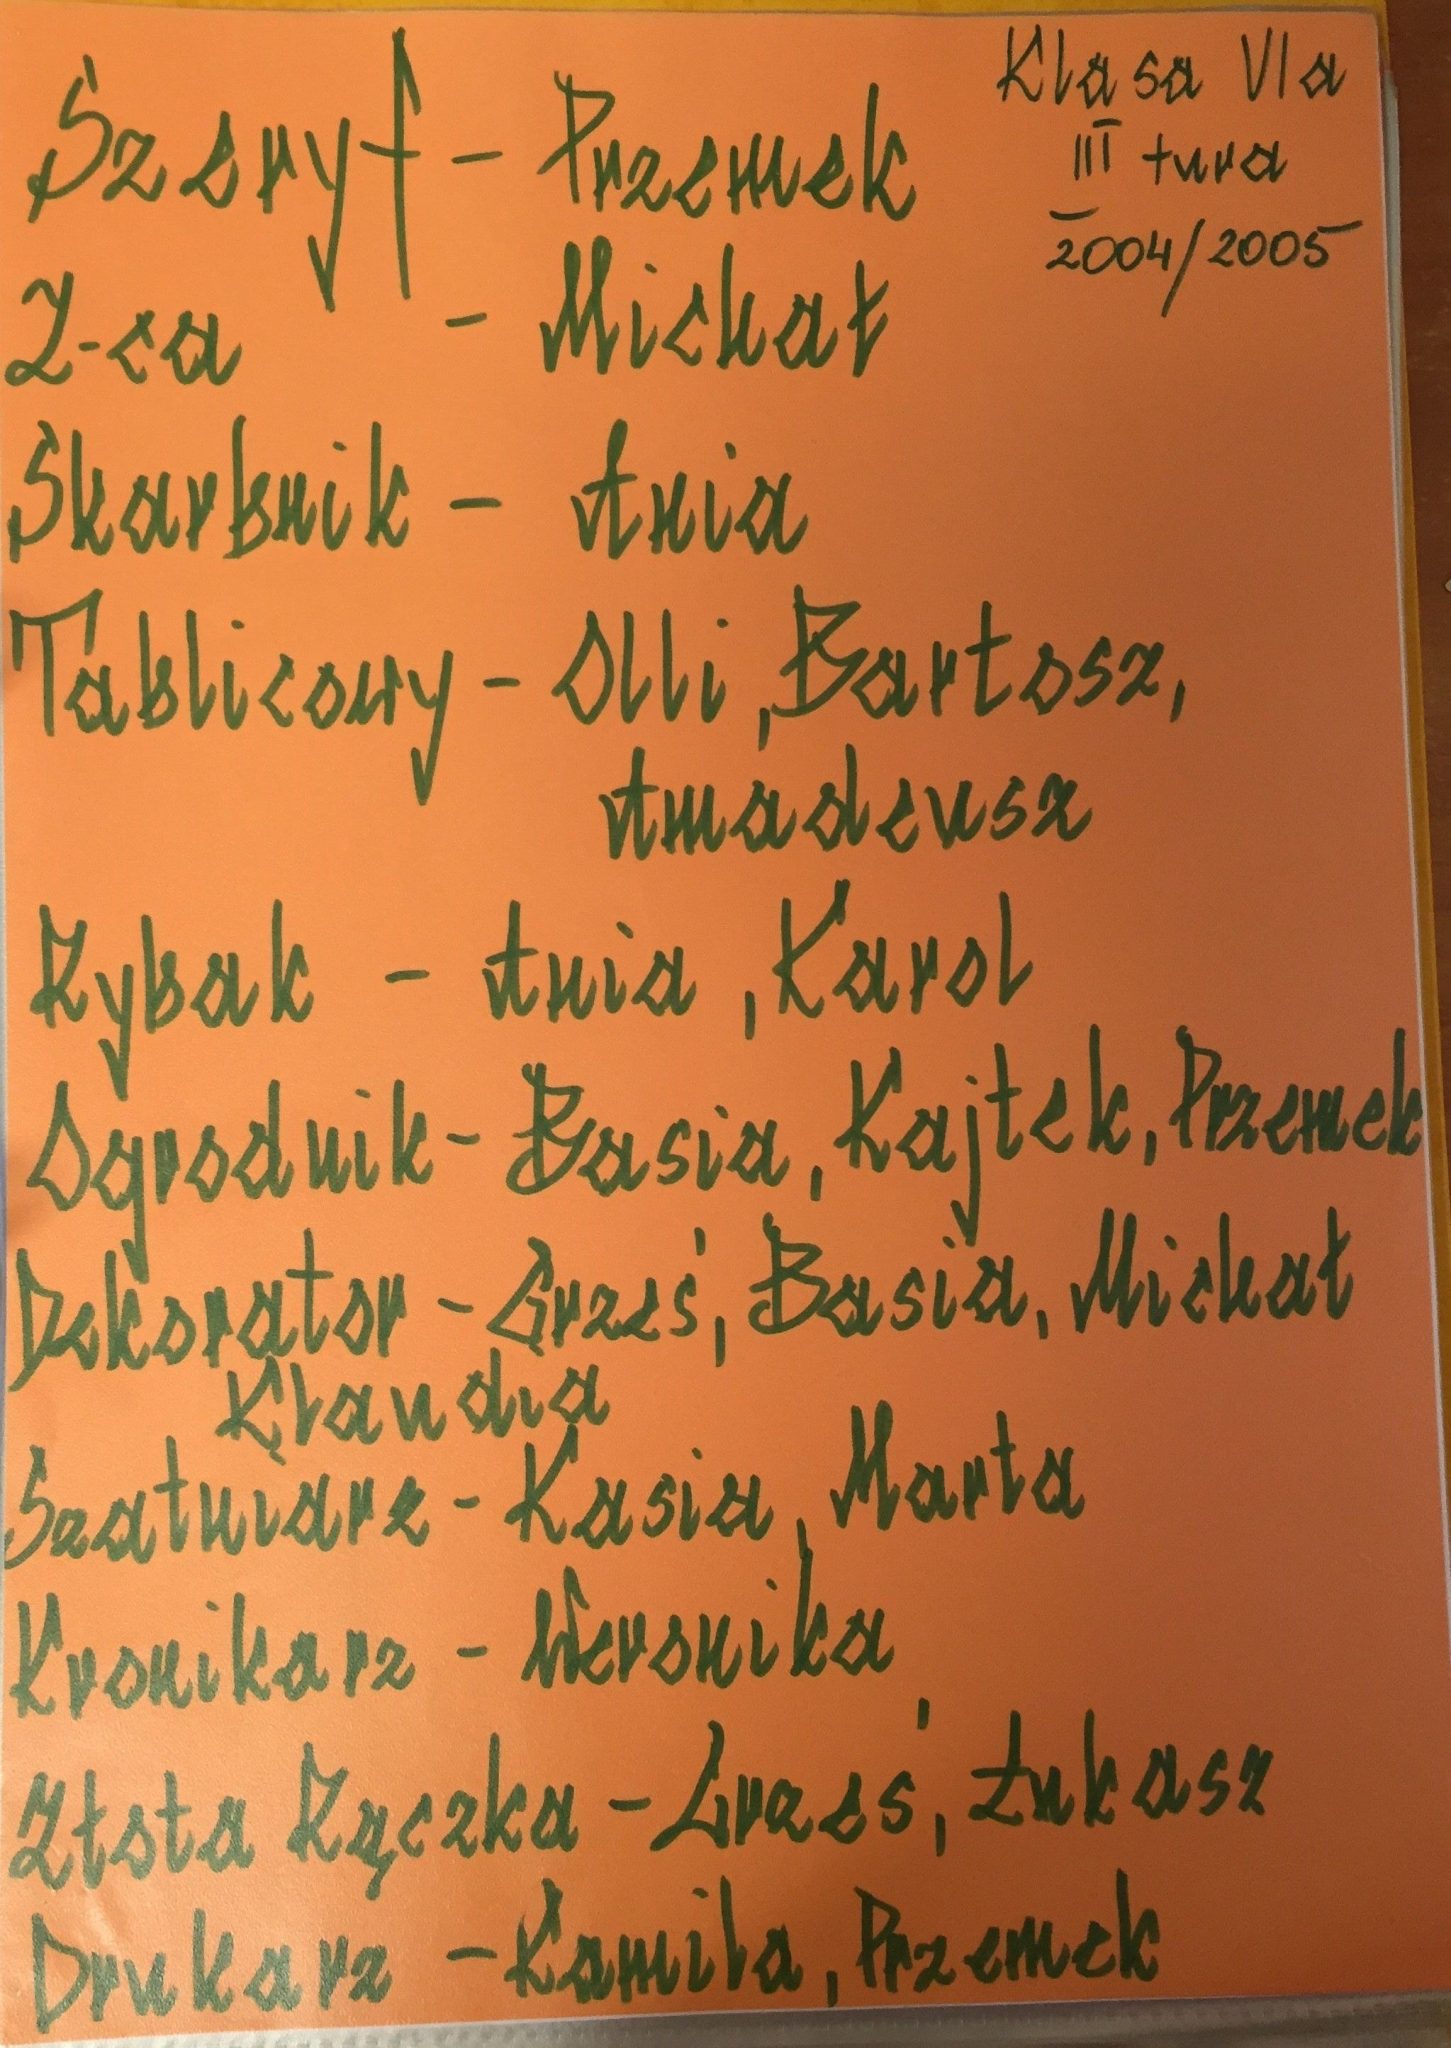 Klasa VIa
III tura
2004/2005
Szeryf - Przemek
Z-ca - Michał
Skarbnik - Ania
Tablicowy - Olli, Bartosz,
Amadeusz
Rybak - Ania, Karol
Ogrodnik - Basia, Kajtek, Przemek
Dekorator - Grześ, Basia, Michał
Klaudia
Szatniarz - Kasia, Marta
Kronikarz - Weronika
Złota Rączka - Grześ, Łukasz
Drukarz - Kamila, Przemek